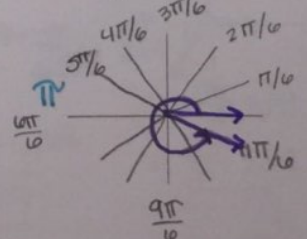 3π/6
4π/6
2π/6
5π/6
π/6
π
6π/6
11π/6
9π/6